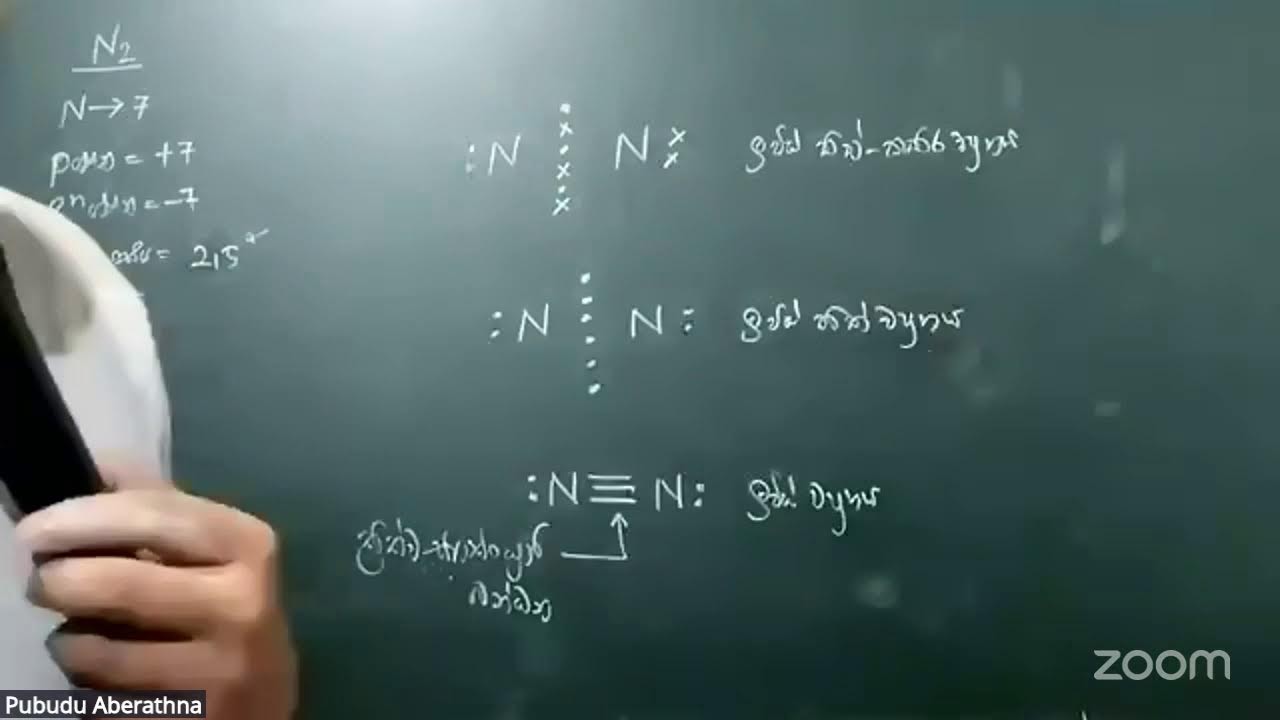 N₂
N → 7
= +7
= -7
= 2,5
:N N ලුවිස් තිත් - කතිර ව්‍යුහය
:N N: ලුවිස් තිත් ව්‍යුහය
:N≡N: ලුවිස් ව්‍යුහය
ත්‍රිත්ව
බන්ධන
zoom
Pubudu Aberathna